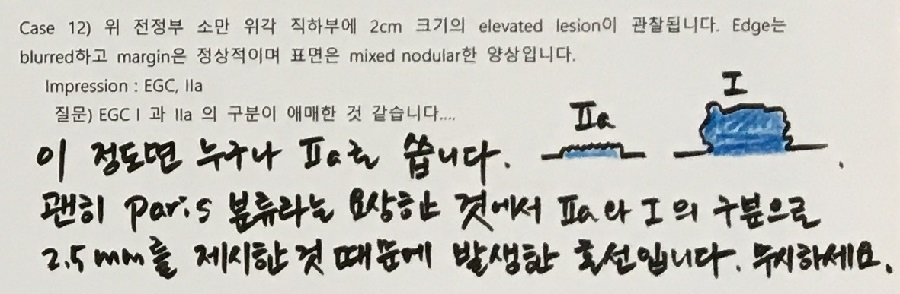 Case 12) 위 전정부 소만 위각 직하부에 2cm 크기의 elevated lesion이 관찰됩니다. Edge는
blurred하고 margin은 정상적이며 표면은 mixed nodular한 양상입니다.
Impression : EGC, IIa
질문) EGC I 과 IIa 의 구분이 애매한 것 같습니다....
IIa I
이 정도면 누구나 IIa로 씁니다.
괜히 Paris 분류라는 요상한 것에서 IIa와 I의 구분으로
2.5mm를 제시한 것 때문에 발생한 혼선입니다. 무시하세요.